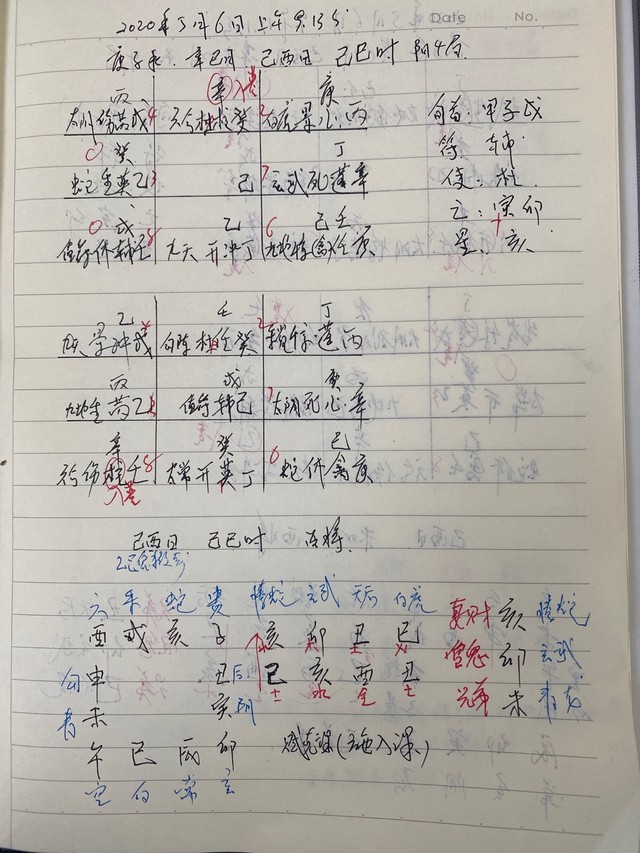 Date No.
2020年5月6日上午9:13分
庚子年 辛巳月 己酉日 己巳时 阳4局
丙 辛入墓 庚
太阴伤芮戊4 六合杜柱癸 2白虎景心丙 旬首:甲子戊
○癸 丁 符:辅
螣蛇生英乙3 己 7玄武死蓬辛 使:杜
○戊 乙 己壬 亡:寅卯
值符休辅壬8 九天开冲丁 6九地惊禽任庚 星:亥
乙 壬 丁
冲戊 任癸 2 蓬丙
丙 戊 庚
九地生芮乙3 值符辅己 7太阴死心辛
辛 癸 己
六合伤柱壬8 太常开英丁 6蛇休禽庚
入墓
己酉日 己巳时
六 朱 蛇 贵 螣蛇 玄武 天后 白虎 妻财 亥 螣蛇
酉 戌 亥 子 亥 卯 丑 巳 官鬼 卯 玄武
勾申 丑后 己 亥 酉 丑 兄弟 未 青龙
青未 寅阴 土 水 金 土
午 巳 辰 卯
空 白 常 玄